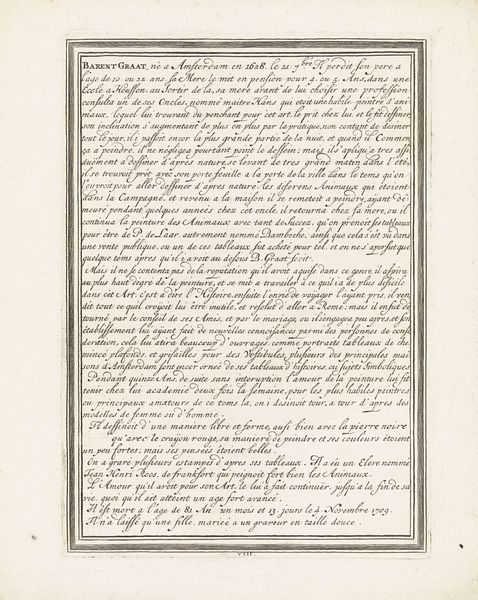 BARENT GRAAT, né a Amsterdam en 1628. le 21. 7.bre Il perdit son pere a
l'age de 10. ou 12. ans. sa Mere le mit en pension pour 4. ou 5. Ans, dans une
Ecole a au sortir de la, sa mere avant de lui choisir une profession
consulta un de ses Oncles, nommé maitre Hâns qui etoit une habile peintre d'ani-
maux, lequel lui trouvant du penchant pour cet art, le prit chez lui, et le fit dessiner,
son inclination s'augmentant de plus en plus par la pratique, non contant de desiner
tout le jour, il i passoit encor la plus grande partie de la nuit, et quand il Commen
ça a peindre, il ne négligea pourtant point le dessein; mais il s'apliqua tres assi
duëment a dessiner d'apres nature, se levant de tres grand matin dans l'eté,
il se trouvoit prêt avec son porte feuille a la porte de la ville dans le tems qu'on
l'ouvroit pour aller dessiner d'apres nature, les diferens Animaux qui étoient
dans la Campagne, et revenu a la maison il se remettoit a peindre, ayant de-
meuré pendant quelques années chez cet oncle, il retourna chez sa mere, ou il
continua la peinture des Animaux avec tant de succes, qu'on prenoit ses tableaux
pour être de P. de Laar, autrement nommé Bamboche, ainsi que cela s'est vû dans
une vente publique, ou un de ces tableaux fut acheté pour tel, et on ne s'aperçut que
quelque tems apres qu'il i avoit au desous B. Graat fecit.
Mais il ne se contenta pas de la reputation qu'il avoit aquise dans ce genre, il aspira
au plus haut degré de la peinture, et se mit a travailer a ce qu'il i a de plus dificile
dans cet Art, c'est a dire l'Histoire, ensuite l'envie de voyager l'ayant pris, il ven
dit tout ce qu'il croyoit lui être inutile, et resolut d'aller a Rome; mais il en fut de
tourné, par le conseil de ses Amis, et par le mariage, ou il s'engagea peu apres, et son
établissement lui ayant fait de nouvelles connoisances parmi des personnes de consi
deration, cela lui atira beaucoup d'ouvrages, comme portraits, tableaux de che
mineé plafonds, et grisailles pour des Vestibules, plusieurs des principales mai
sons d'Amsterdam sont encor orneé de ses tableaux d'histoires, ou sujets Simboliques
Pendant quinze Ans, de suite sans interuption l'amour de la peinture lui fit
tenir chez lui academie deux fois la semaine, pour les plus habiles peintres
ou principaux amateurs de ce tems la, on i desinoit tour, a tour d'apres des
modelles de femme ou d'homme.
Il dessinoit d'une maniere libre et ferme, ausi bien avec la pierre noire
qu'avec le craÿon rouge, sa maniere de peindre et ses couleurs étoient
un peu fortes; mais ses pensées étoient belles.
On a gravé plusieurs estampes d'apres ses tableaux. Il a eu un Eleve nommé
Jean Henri Roos, de frankfort qui peignoit fort bien les Animaux.
L'Amour qu'il avoit pour son Art, le lui a fait continuër, jusqu'a la fin de sa
vie, quoi qu'il ait atteint un age fort avancé.
Il est mort a l'age de 81. An un mois et 13. jours le 4. Novembre 1709.
Il n'a laissé qu'une fille, marieé a un graveur en taille douce.
VIII.